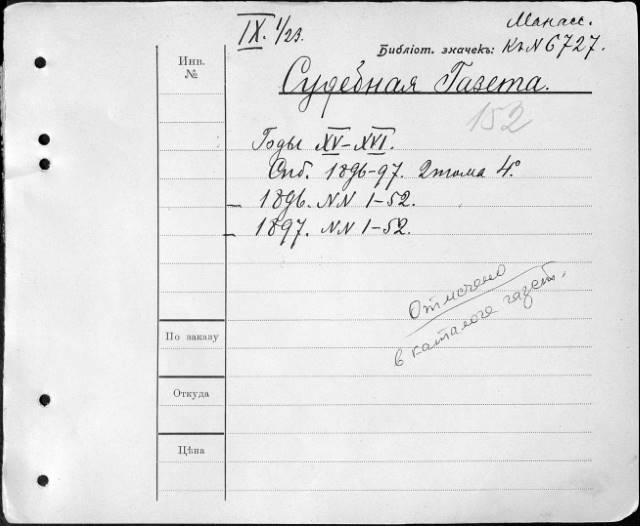 IX. 1/23.
Манасс.
Библіот. значекъ: КъN6727.
Инв.
№
Судебная Газета.
152
Годы XV-XVI.
Спб. 1896-97. 2 тома 4°.
— 1896. NN 1-52.
— 1897. NN 1-52.
Отмечено
в каталоге газет.
По заказу
Откуда
Цѣна